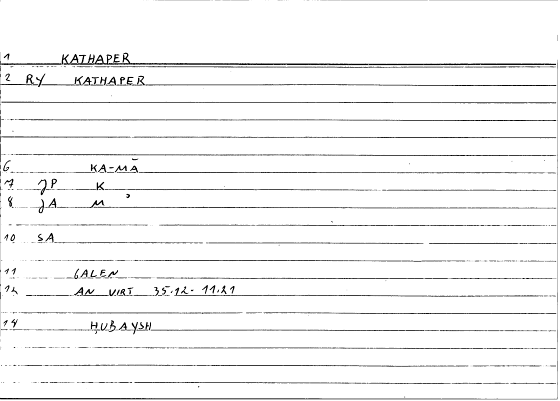 1 KATHAPER
2 RY KATHAPER
6 KA-MĀ
7 JP K
8 JA M ʾ
10 SA
11 GALEN
12 AN VIRT 35.12-11.21
14 ḤUBAYSH